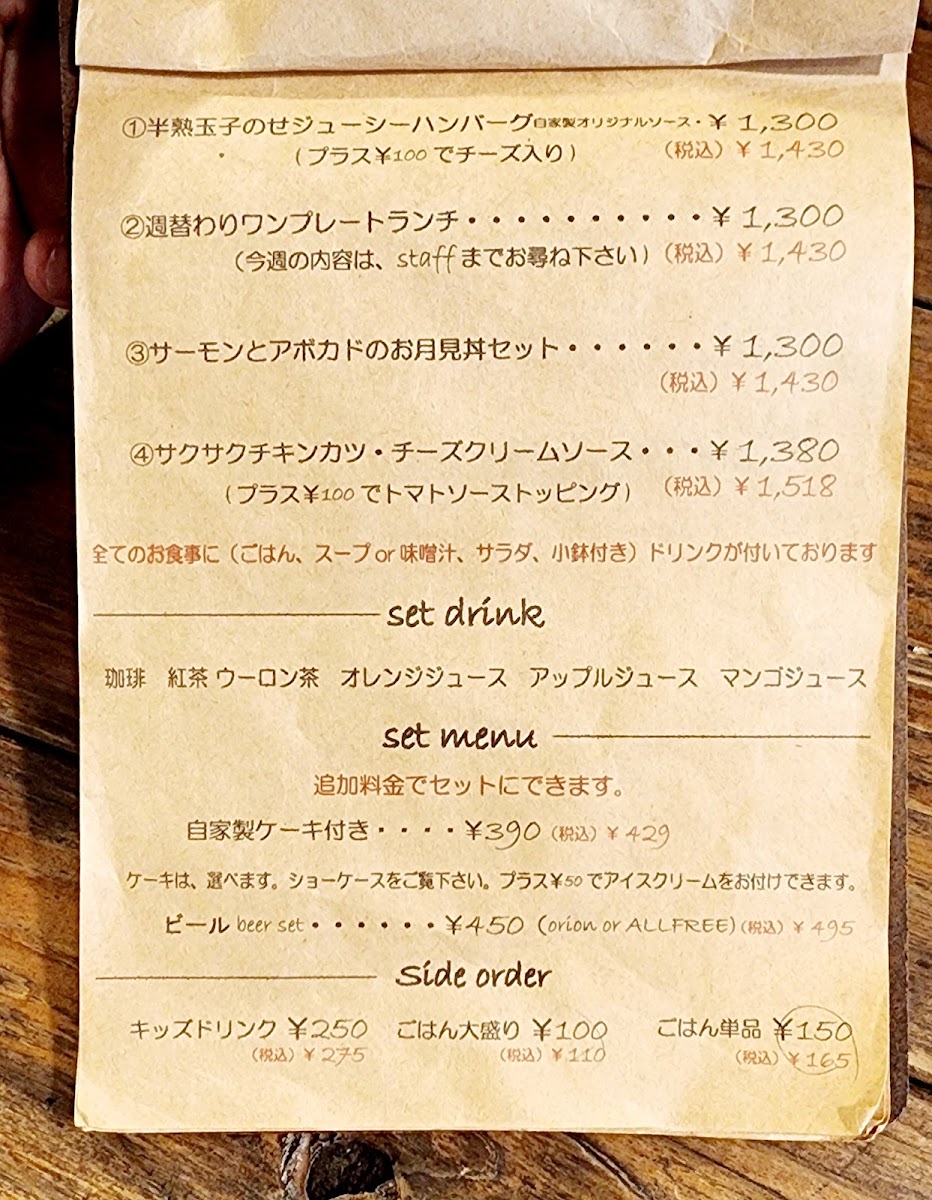 ①半熟玉子のせジューシーハンバーグ自家製オリジナルソース・¥1,300
(プラス¥100でチーズ入り) (税込)¥1,430
②週替わりワンプレートランチ・・・・・・・・・・¥1,300
(今週の内容は、staffまでお尋ね下さい) (税込)¥1,430
③サーモンとアボカドのお月見丼セット・・・・・・¥1,300
(税込)¥1,430
④サクサクチキンカツ・チーズクリームソース・・・¥1,380
(プラス¥100でトマトソーストッピング) (税込)¥1,518
全てのお食事に(ごはん、スープor味噌汁、サラダ、小鉢付き)ドリンクが付いております
set drink
珈琲 紅茶 ウーロン茶 オレンジジュース アップルジュース マンゴジュース
set menu
追加料金でセットにできます。
自家製ケーキ付き・・・・¥390(税込)¥429
ケーキは、選べます。ショーケースをご覧下さい。プラス¥50でアイスクリームをお付けできます。
ビール beer set・・・・・・¥450 (orion or ALLFREE)(税込)¥495
Side order
キッズドリンク ¥250 ごはん大盛り ¥100 ごはん単品 ¥150
(税込)¥275 (税込)¥110 (税込)¥165